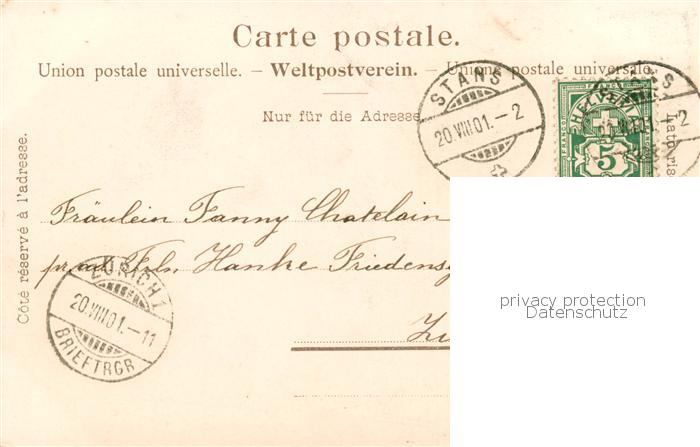 Carte postale.
Union postale universelle. – Weltpostverein. – Unione postale universale.
Nur für die Adresse
Côté réservé à l'adresse.
STANS
20.VIII.01.–2
STANS
VIII.01.–2
HELVETIA
FRANCO
5
Fräulein Fanny Chatelain
Frls. Hanke
ZÜRICH 1
20.VIII.01.–11
BRIEFTRGR
privacy protection
Datenschutz